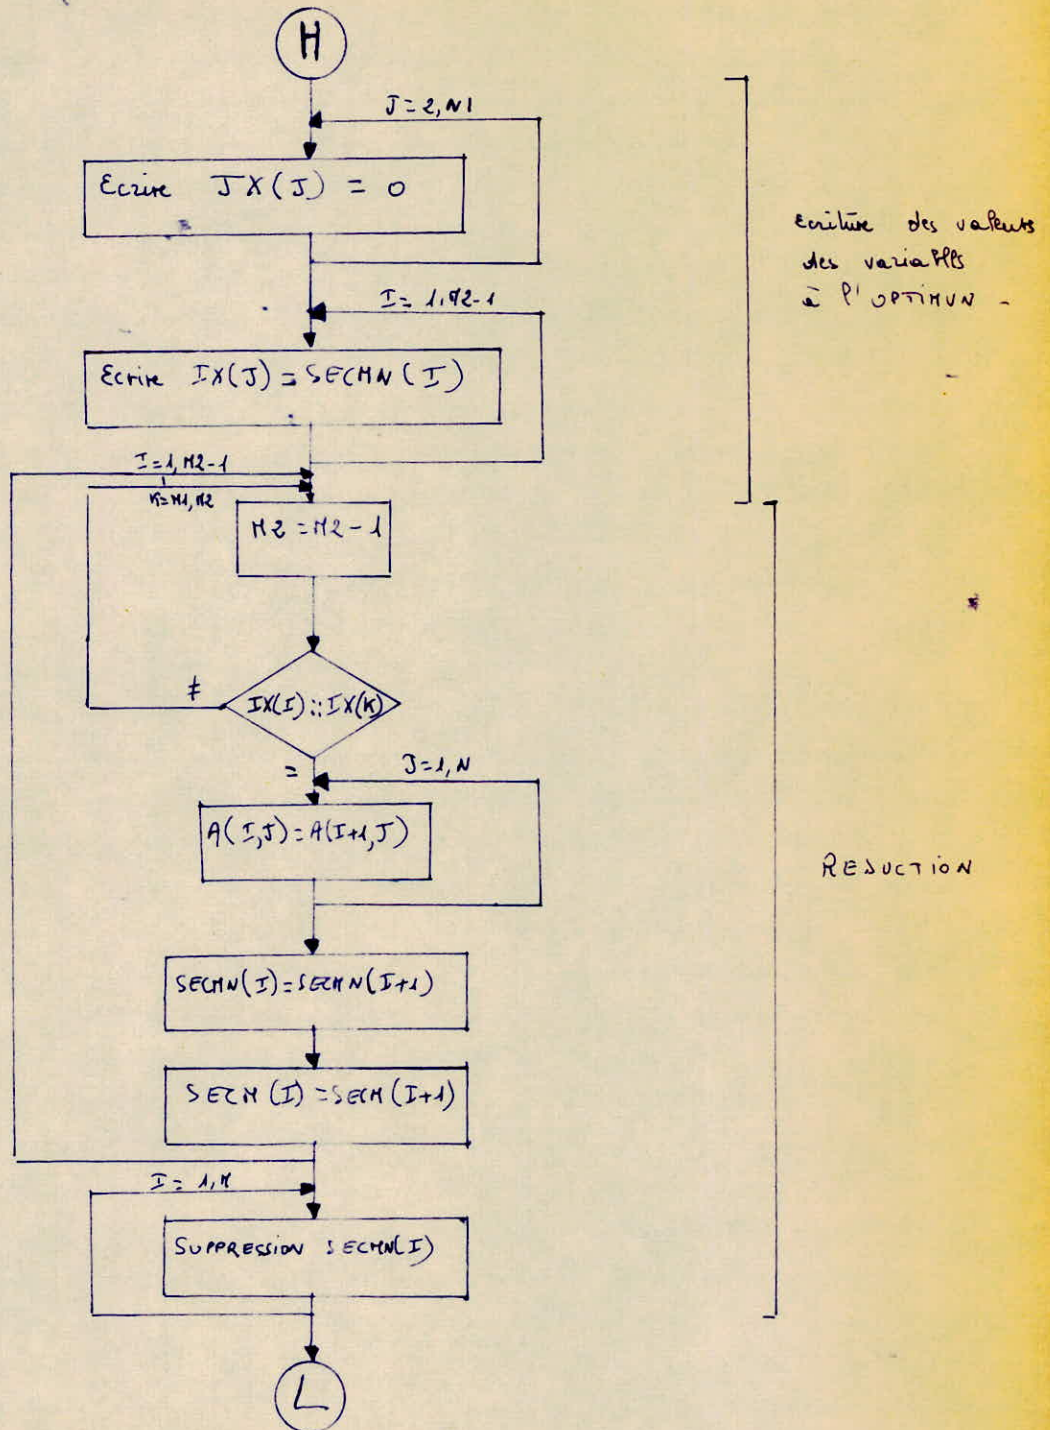 H
J=2, N1
Ecrire JX(J) = 0
I= 1, M2-1
Ecrire IX(J) = SECMN(I)
I=1, M2-1
K=M1, M2
M2 = M2-1
≠
IX(I) :: IX(K)
=
J=1, N
A(I,J)=A(I+1,J)
SECMN(I)=SECMN(I+1)
SECM(I)=SECM(I+1)
I= 1, M
SUPPRESSION SECMN(I)
L
Ecriture des valeurs
des variables
à l'OPTIMUN -
REDUCTION